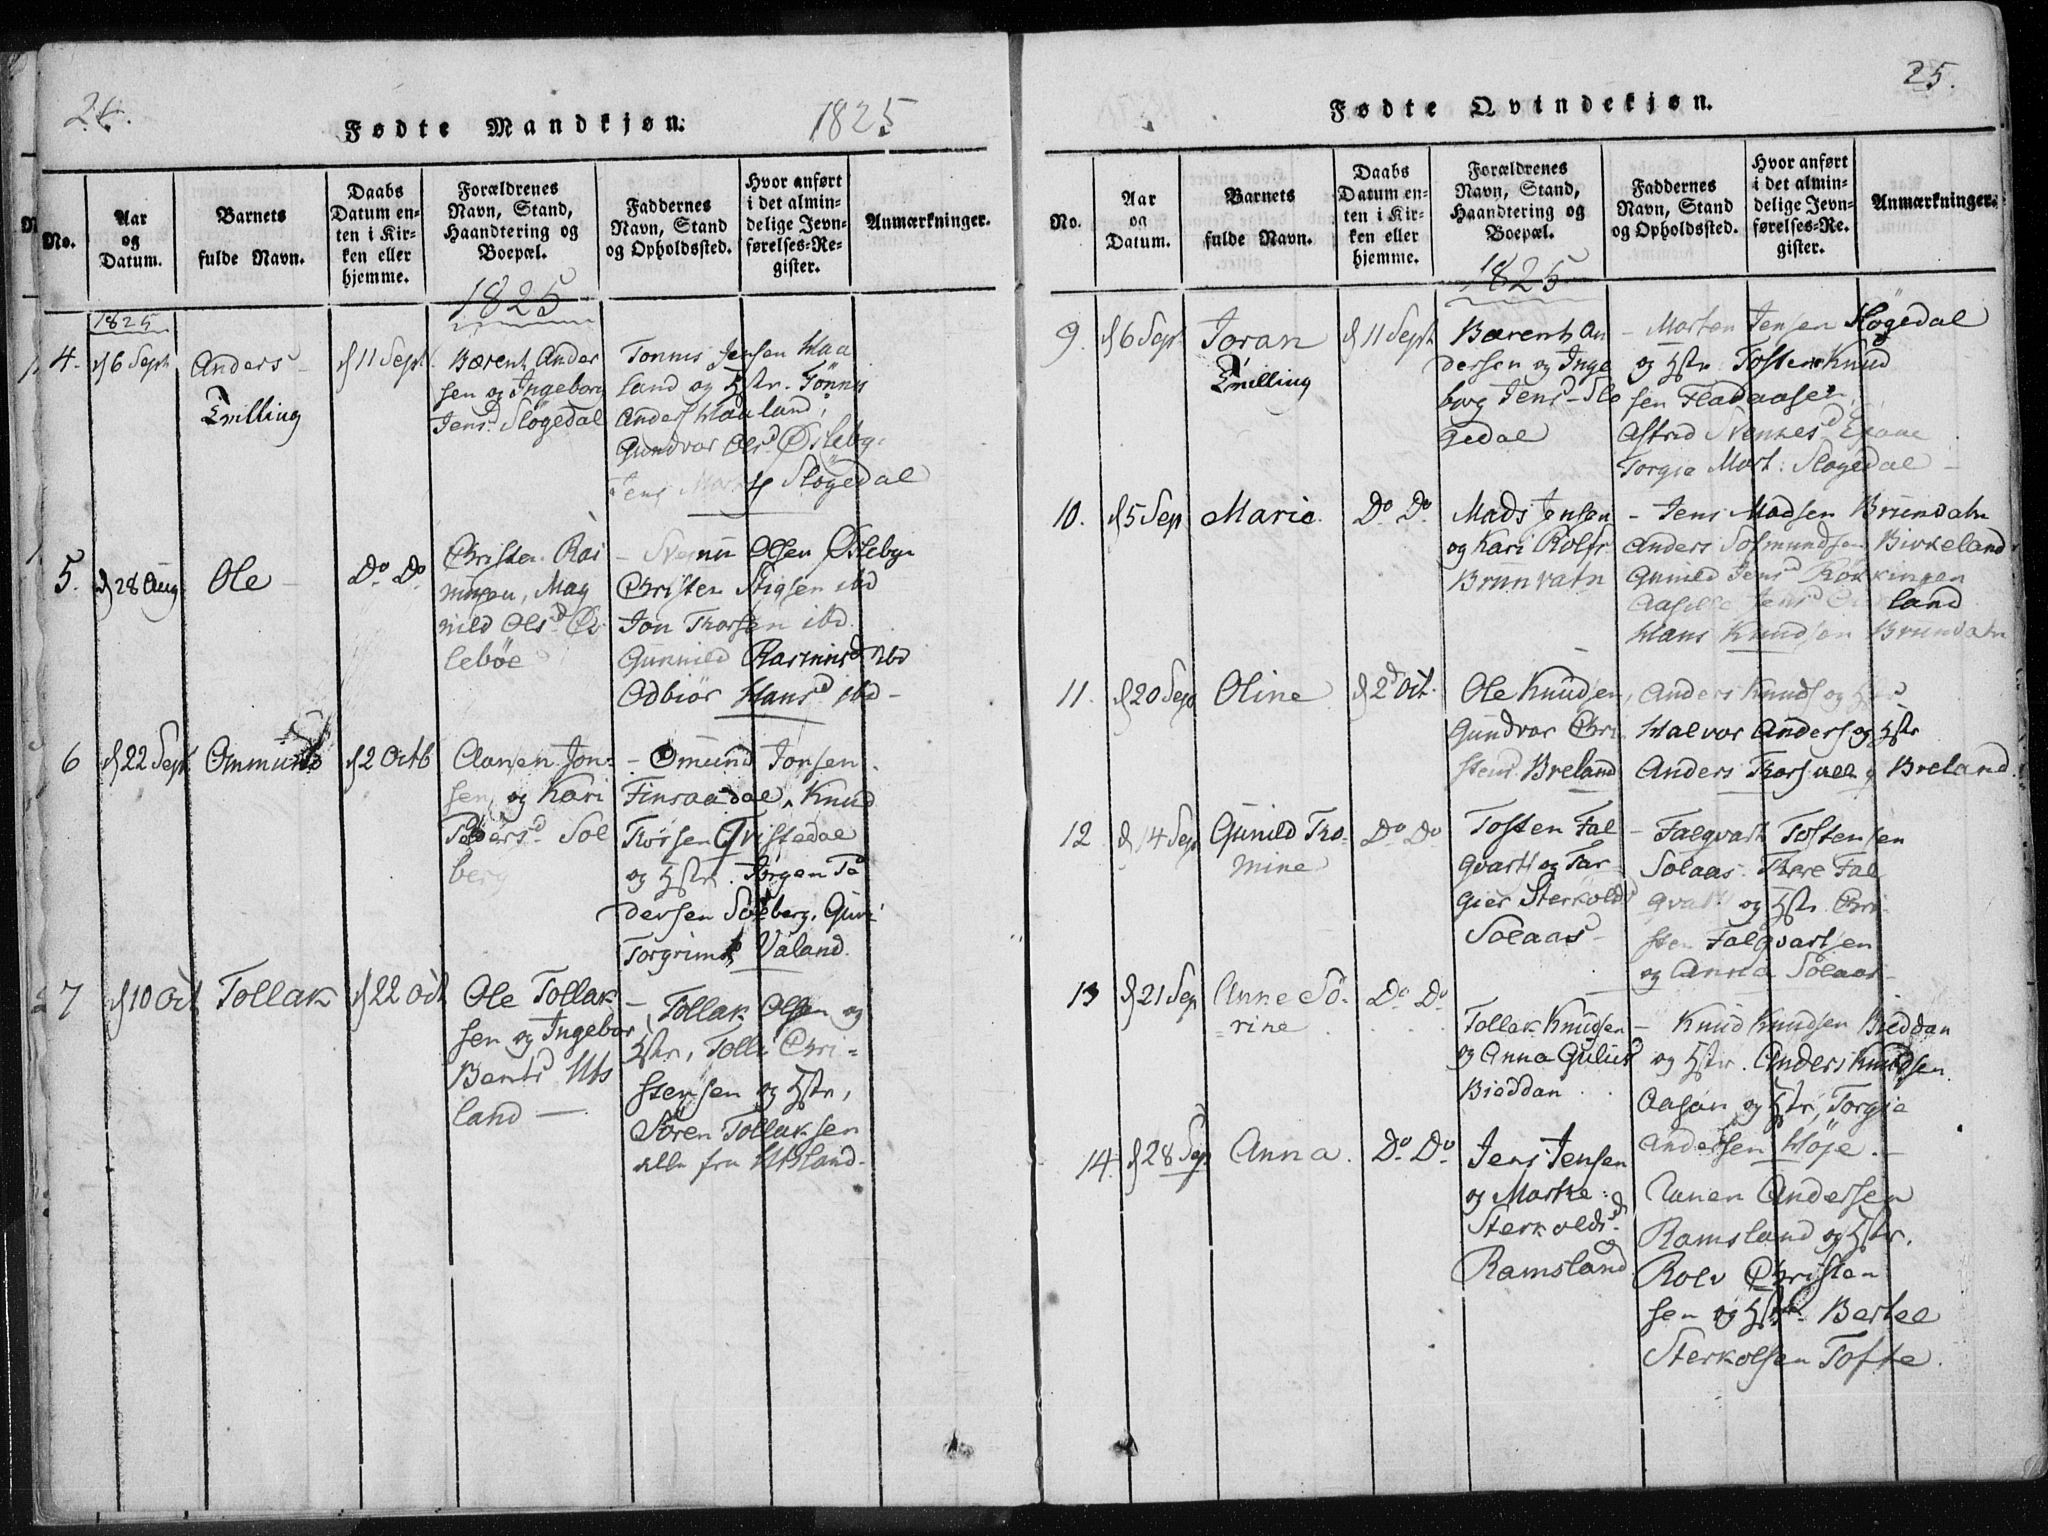 24.
Fødte Mandkjøn.
1825
No.
Aar og Datum.
Barnets fulde Navn.
Daabs Datum enten i Kirken eller hjemme.
Forældrenes Navn, Stand, Haandtering og Boepæl.
Faddernes Navn, Stand og Opholdssted.
Hvor anført i det almindelige Jevnførelses-Register.
Anmærkninger.
1825
1825
4. d 6 Sept
Anders
Tvilling
d 11 Sept
Bærent Ander
sen og Ingeborg
Jensd. Slögedal
Tönnis Jensen Haa
land og Hstr. Tönnis
Anders Haaland,
Gundvor Olsd Øslebye
Jens Slögedal
5. d 28 Aug
Ole
Do Do
Christen Ras
musen, Mag
nild Olsd Øs
lebøe
Olsen Øslebye
Christen Stigsen ibd
Jon Thorsen ibd.
Gunnild Rasmusd ibd
Odbiör Hansd ibd -
6 d 22 Sept
Ommund
d 2 Octb
Aanen Jon-
sen, og Kari
Pedersd Sol
berg
- Omund Jonsen
Finsaadal, Knud
Thorsen Qvistedal
og Hstr. Jörgen Pe
dersen Solberg, Guri
Torgrimsd Valand.
7 d 10 Oct
Tollak
d 22 Oct
Ole Tollak
sen og Ingebor
Bentsd Ubs
land -
- Tollak Olsen og
Hstr, Tolli Chri-
stensen og Hstr,
Sören Tollaksen
alle fra Ubsland.
25.
Fødte Qvindekjøn.
No.
Aar og Datum.
Barnets fulde Navn.
Daabs Datum enten i Kirken eller hjemme.
Forældrenes Navn, Stand, Haandtering og Boepæl.
Faddernes Navn, Stand og Opholdssted.
Hvor anført i det almindelige Jevnførelses-Re. gister.
Anmærkninger.
1825
9. d 6 Sept
Joran
Tvilling
d 11 Sept
Bærent An
dersen og Inge
borg Jensd Slö
gedal
- Morten Jensen Slögedal
og Hstr. Tosten Knud
sen Fladaasen,
Astrid
Torgie Mort: Slogedal -
10. d 5 Sep
Marie.
Do Do
Mads Jensen
og Kari Rolfs
Brunvatn
- Jens Madsen Brundatn
Anders Sosmundsen Birkeland
Gunild Jensd Røkkingen
Aasille Jensd land
Hans Knudsen Brundatn
11. d 20 Sep
Oline
d 2d Oct.
Ole Knudsen,
Gundvor Chri
stensd Breland
Anders Knuds og Hstr
Halvor Anders og Hstr
Anders Thors alle Breland.
12 d 14 Sep
Gunild Tho-
mine
Do Do
Tosten Fal
qvarts og Tar-
gier Sterkolds
Solaas -
- Falqvart Tostensen
Solaas. There Fal
qvart og Hstr. Chri-
sten Falqvartsen
og Anna Solaas -
13 d 21 Sep
Anne Sö-
rine
Do Do
Tollak Knudsen
og Anna Guliksd
Bieddan
- Knud Knudsen Bieddan
og Hstr. Anders Knudsen
Aasan og Hstr, Torgie
Andersen Höje.
14. d 28 Sep
Anna.
Do Do
Jens Jensen
og Marthe
Sterkoldsd.
Ramsland
Aanen Andersen
Ramsland og Hstr.
Rolv Christen
sen og Hstr. Bertel
Sterkolsen Tofte.